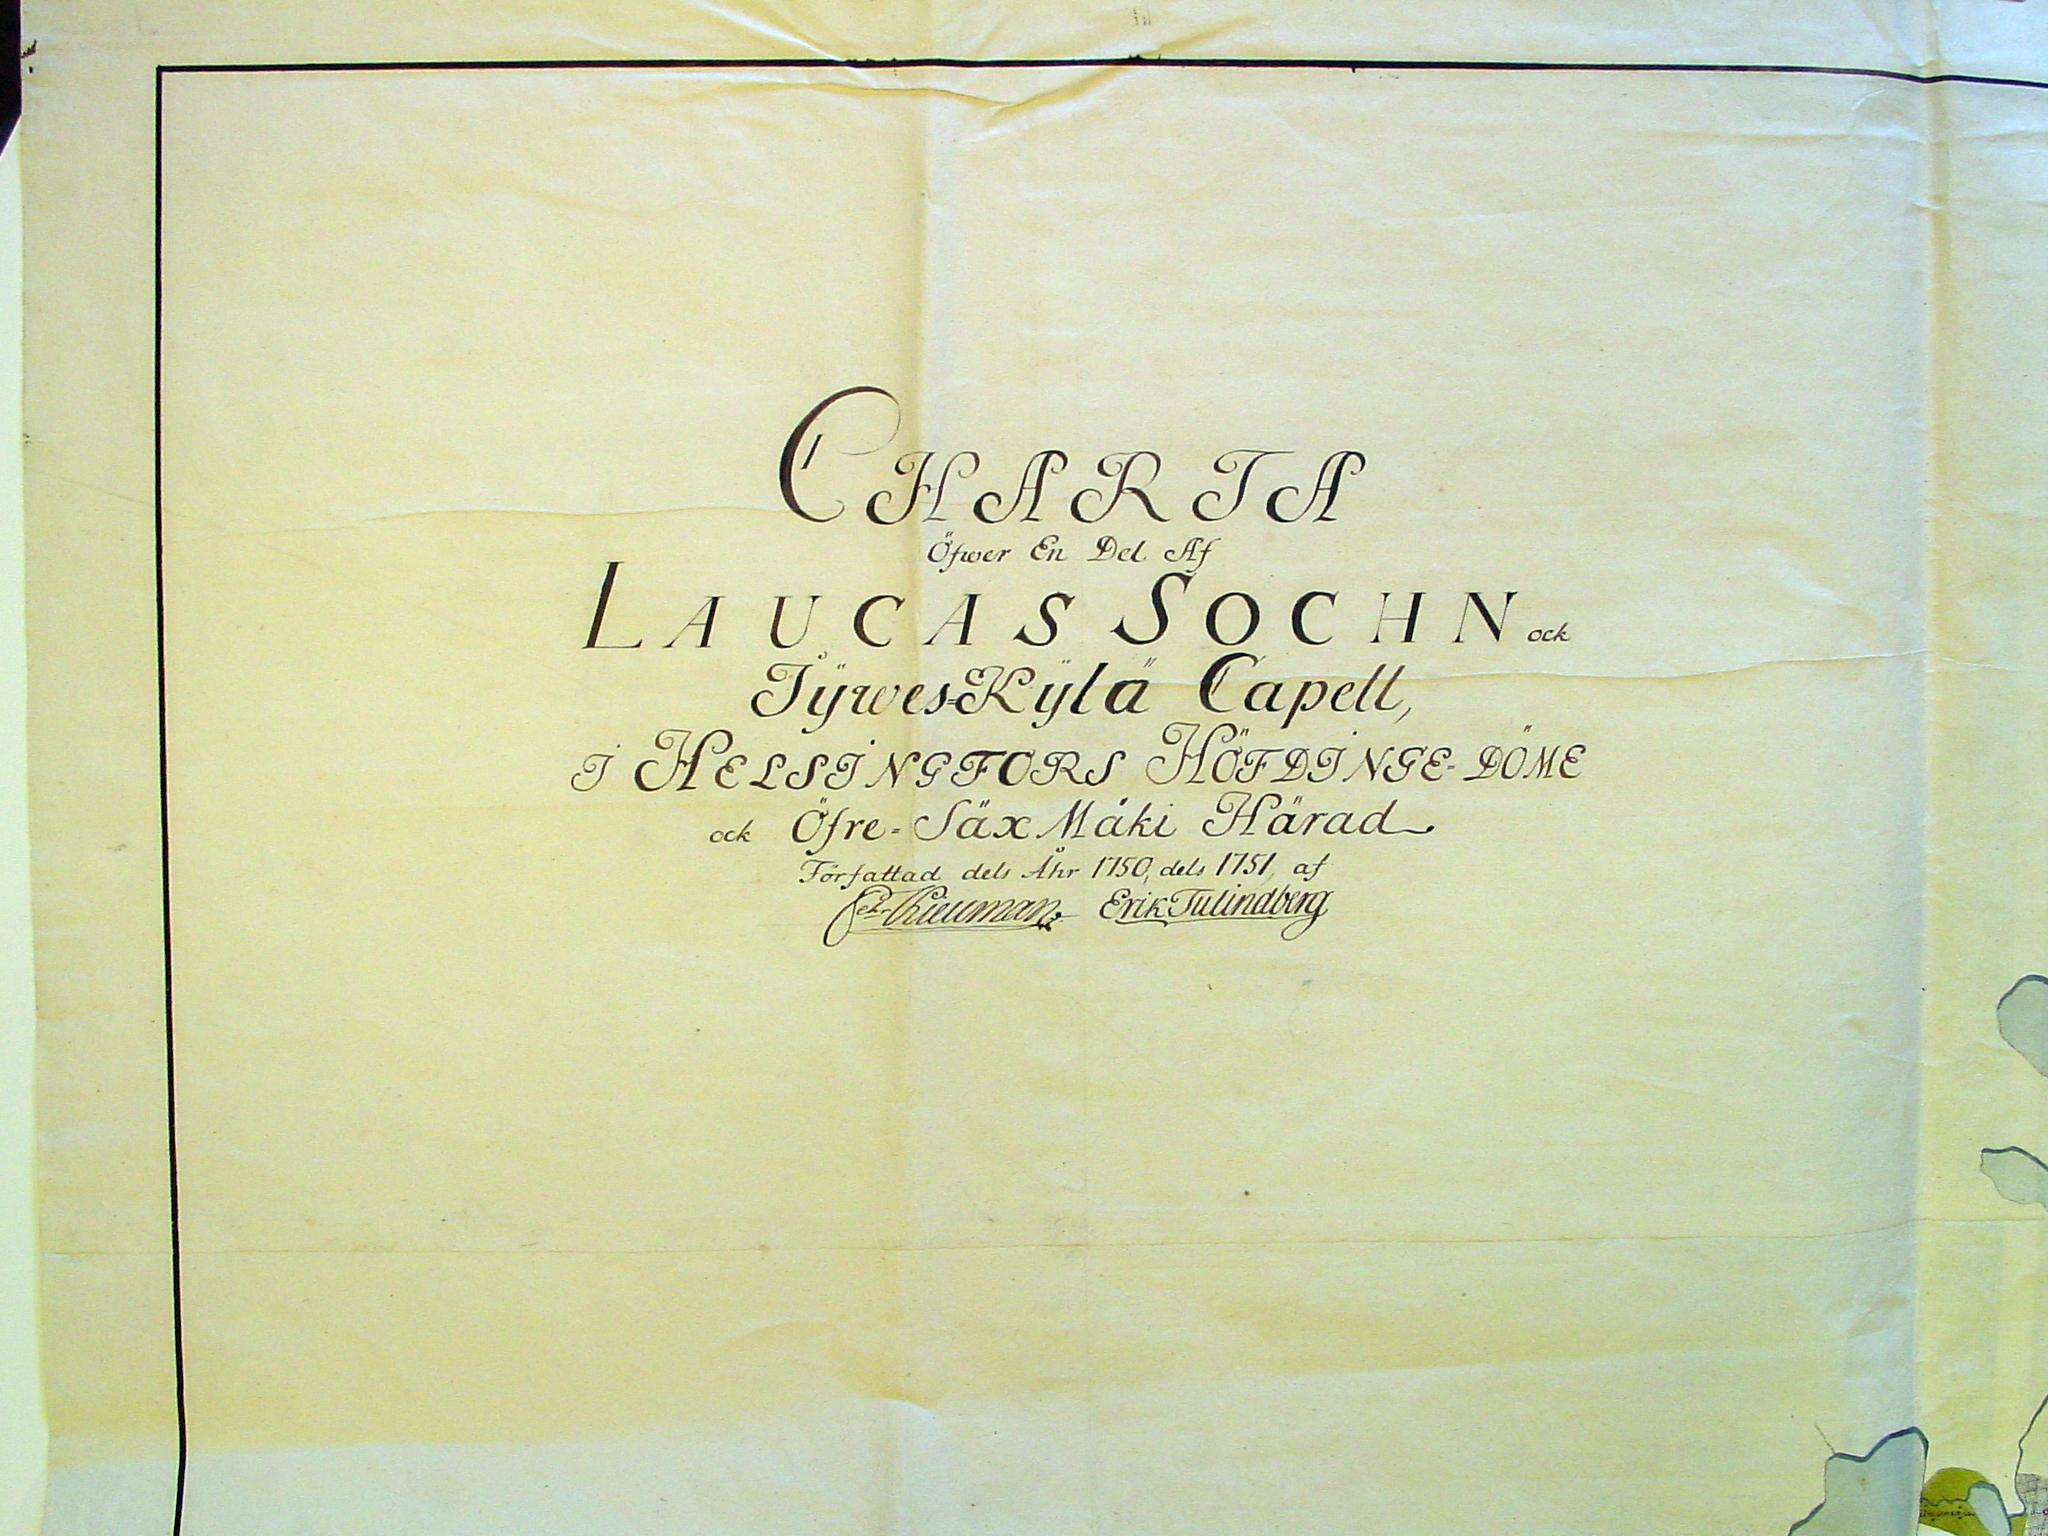 CHARTA
Öfwer En Del Af
LAUCAS SOCHN ock
Jÿwes=Kÿlä Capell,
i HELSINGFORS HÖFDINGE-DÖME
ock Öfre=Säx Mäki Härad
Författad dels Åhr 1750, dels 1751, af
Erik Tulindberg